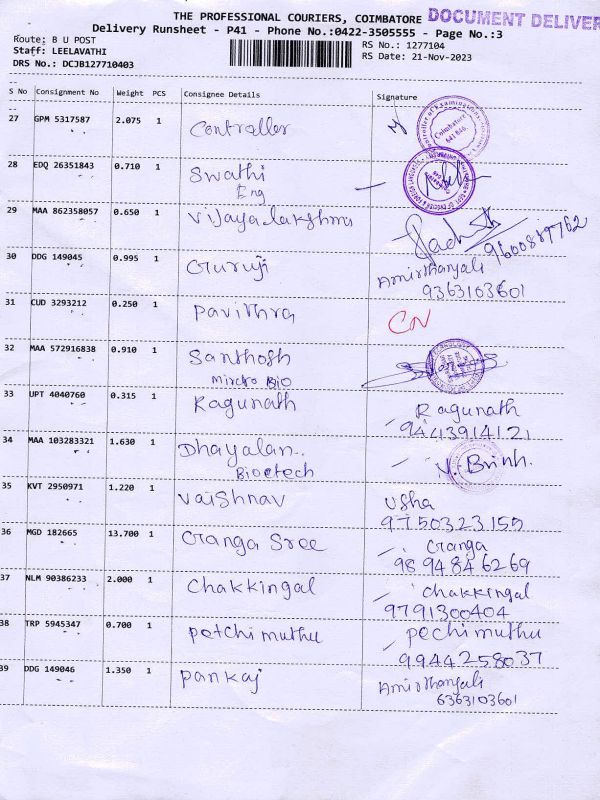 THE PROFESSIONAL COURIERS, COIMBATORE DOCUMENT DELIVER
Delivery Runsheet - P41 - Phone No.:0422-3505555 - Page No.:3
Route: B U POST
Staff: LEELAVATHI
DRS No.: DCJB127710403
RS No.: 1277104
RS Date: 21-Nov-2023
S No Consignment No Weight PCS Consignee Details Signature
27 GPM 5317587 2.075 1 Controller
Coimbatore
641 046.
28 EDQ 26351843 0.710 1 Swathi
Eng
29 MAA 862358057 0.650 1 Vijayalakshmi
9600889762
30 DDG 149045 0.995 1 Guruji Amirthanjali
9363103601
31 CUD 3293212 0.250 1 Pavithra CN
32 MAA 572916838 0.910 1 Santhosh
Micro Bio
33 UPT 4040760 0.315 1 Ragunath Ragunath
9443914121
34 MAA 103283321 1.630 1 Dhayalan
Bioetech
35 KVT 2950971 1.220 1 Vaishnav Usha
9750323155
36 MGD 182665 13.700 1 Cranga Sree Cranga
9894846269
37 NLM 90386233 2.000 1 Chakkingal Chakkingal
9791300404
38 TRP 5945347 0.700 1 Petchimuthu Pechimuthu
9944258037
39 DDG 149046 1.350 1 Pankaj Amirthanjali
6363103601